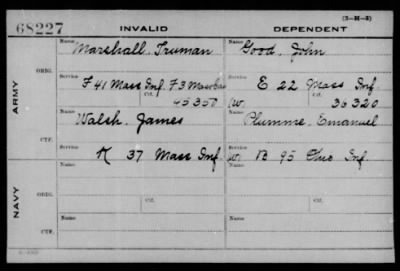 68227
INVALID
DEPENDENT
(3-M-3)
ARMY
ORIG.
Name
Marshall, Truman
Name
Good, John
Service
F 41 Mass Inf. F 3 Mass Cav
Ctf.
45350
Service
E 22 Mass Inf.
Ctf.
(W) 36320
CTF.
Name
Walsh, James
Name
Plumme, Emanuel
Service
K 37 Mass Inf.
Service
(W) B 95 Ohio Inf.
NAVY
ORIG.
Name
Ctf.
Name
Ctf.
CTF.
Name
Name